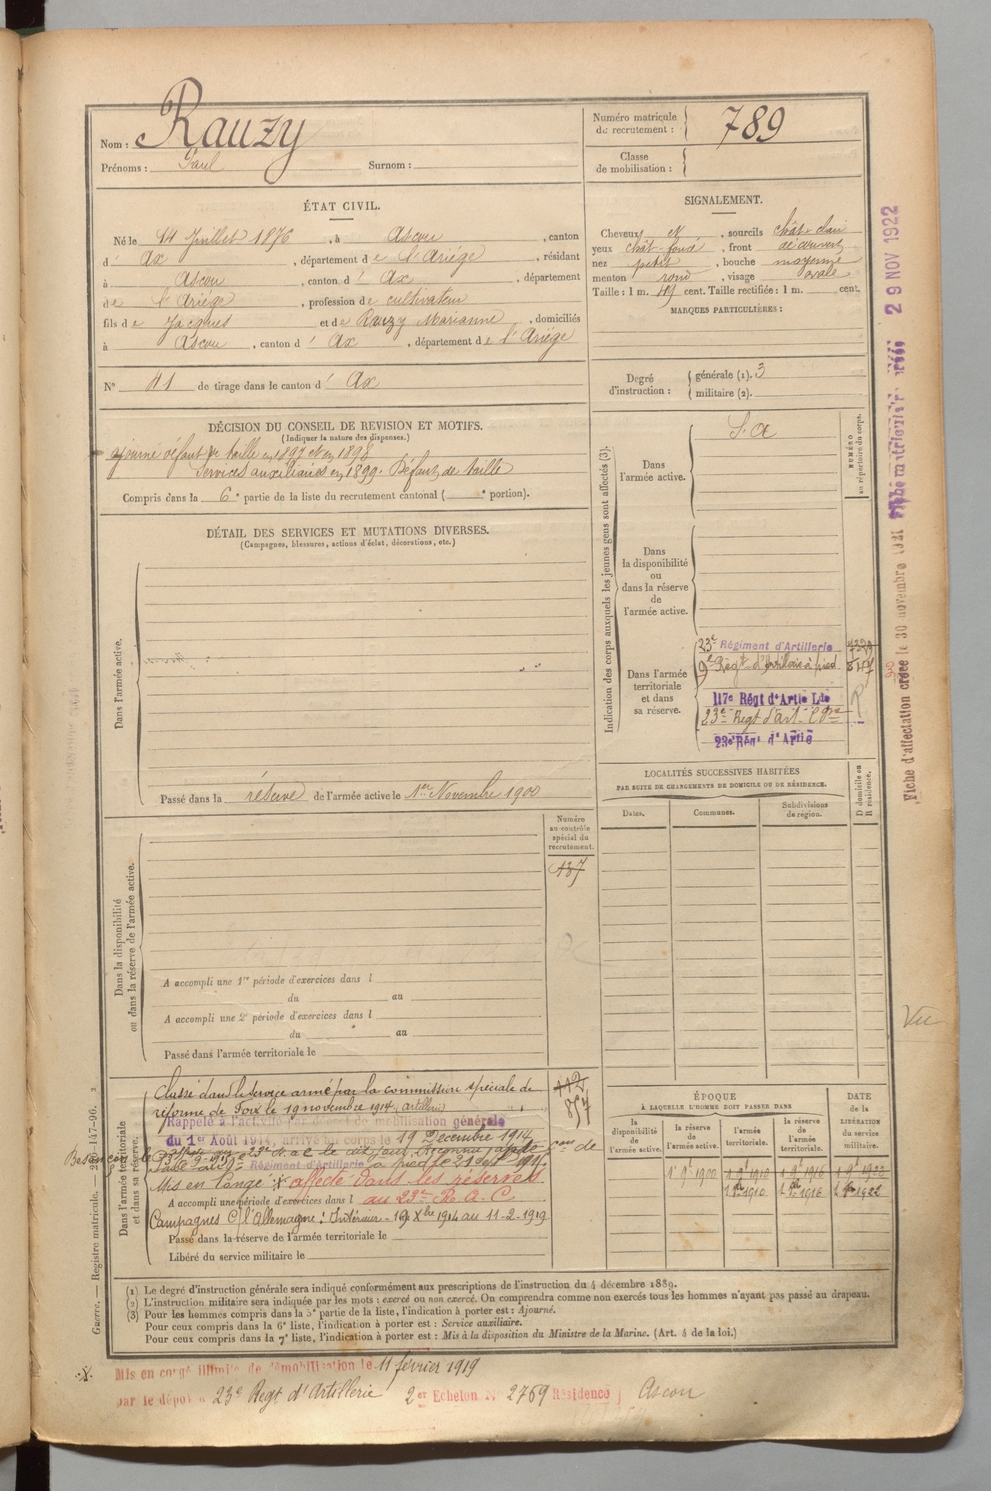 Nom : Rauzy
Prénoms : Paul Surnom :
Numéro matricule de recrutement : 789
Classe de mobilisation :
ÉTAT CIVIL.
Né le 14 Juillet 1876, à Ascou, canton
d' Ax, département de l'Ariége, résidant
à Ascou, canton d' Ax, département
de l'Ariége, profession de cultivateur
fils de Jacques et de Rauzy Marianne, domiciliés
à Ascou, canton d' Ax, département de l'Ariége
N° 41 de tirage dans le canton d' Ax
SIGNALEMENT.
Cheveux et, sourcils chât-clair
yeux chât-foncé, front découvert
nez petit, bouche moyenne
menton rond, visage ovale
Taille : 1 m. 49 cent. Taille rectifiée : 1 m. cent.
MARQUES PARTICULIÈRES :
Degré d'instruction : générale (1). 3
militaire (2).
DÉCISION DU CONSEIL DE REVISION ET MOTIFS.
(Indiquer la nature des dispenses.)
ajourné défaut de taille en 1897 et en 1898
Services auxiliaires en 1899. Défaut de taille
Compris dans la 6e partie de la liste du recrutement cantonal ( e portion).
DÉTAIL DES SERVICES ET MUTATIONS DIVERSES.
(Campagnes, blessures, actions d'éclat, décorations, etc.)
Dans l'armée active.
Passé dans la réserve de l'armée active le 1er Novembre 1900
Indication des corps auxquels les jeunes gens sont affectés (3).
NUMÉRO au répertoire du corps.
Dans l'armée active.
S. A
Dans la disponibilité ou dans la réserve de l'armée active.
Dans l'armée territoriale et dans sa réserve.
23e Régiment d'Artillerie
9e Régt d'Artillerie à pied
117e Régt d'Artie Lde
23e Regt d'art. Cgne
23e Régt d'Artie
LOCALITÉS SUCCESSIVES HABITÉES
PAR SUITE DE CHANGEMENTS DE DOMICILE OU DE RÉSIDENCE.
D domicile ou R résidence.
Dates. Communes. Subdivisions de région.
Dans la disponibilité ou dans la réserve de l'armée active.
Numéro au contrôle spécial du recrutement.
137
A accompli une 1re période d'exercices dans l
du au
A accompli une 2e période d'exercices dans l
du au
Passé dans l'armée territoriale le
Dans l'armée territoriale et dans sa réserve.
Classé dans le service armé par la commission spéciale de
réforme de Foix le 19 novembre 1914, artillerie
Rappelé à l'activité par décret de mobilisation générale
du 1er Août 1914, arrivé au corps le 19 Décembre 1914
Régiment d'Artillerie à pied le
Mis en congé affecté dans les réserves
A accompli une période d'exercices dans l au 23e R.A.C.
Campagnes C/ l'Allemagne : Intérieur - 19 Xbre 1914 au 11-2-1919
Passé dans la réserve de l'armée territoriale le
Libéré du service militaire le
Besançon le
ÉPOQUE
À LAQUELLE L'HOMME DOIT PASSER DANS
DATE de la LIBÉRATION du service militaire.
la disponibilité de l'armée active. la réserve de l'armée active. l'armée territoriale. la réserve de l'armée territoriale.
1er 9bre 1900 1 9bre 1910 1 9bre 1916 1 9bre 1922
(1) Le degré d'instruction générale sera indiqué conformément aux prescriptions de l'instruction du 4 décembre 1889.
(2) L'instruction militaire sera indiquée par les mots : exercé ou non exercé. On comprendra comme non exercés tous les hommes n'ayant pas passé au drapeau.
(3) Pour les hommes compris dans la 5e partie de la liste, l'indication à porter est : Ajourné.
Pour ceux compris dans la 6e liste, l'indication à porter est : Service auxiliaire.
Pour ceux compris dans la 7e liste, l'indication à porter est : Mis à la disposition du Ministre de la Marine. (Art. 4 de la loi.)
Mis en congé illimité de démobilisation le 11 février 1919
par le dépôt 23e Regt d'Artillerie 2er Echelon N° 2769 Résidence Ascou
Guerre. — Registre matricule.
Fiche d'affectation créée le 30 novembre 1921
29 NOV 1922
Vu